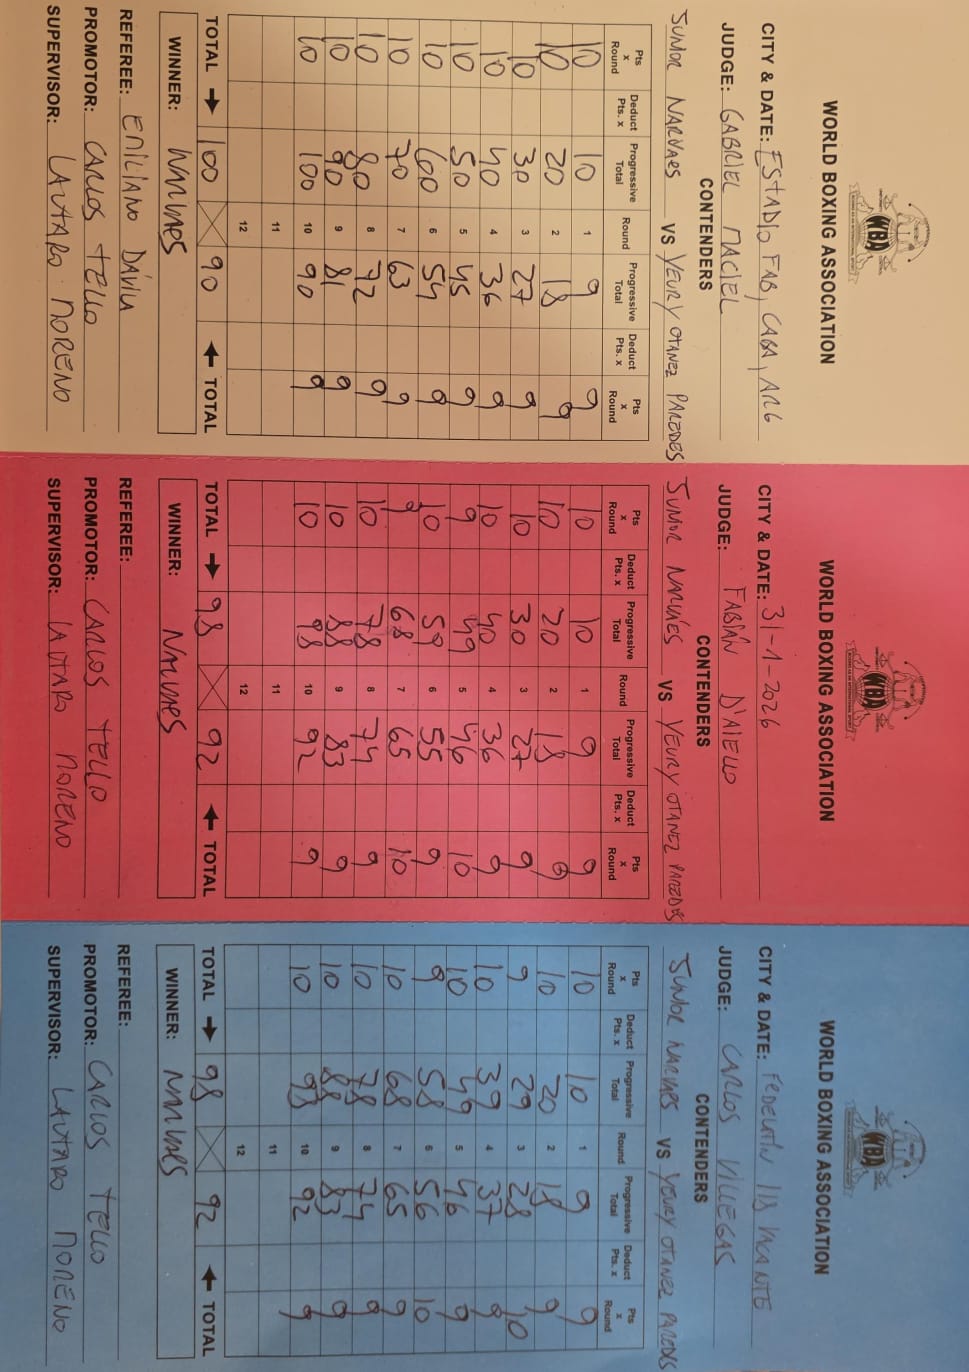 WBA
WORLD BOXING ASSOCIATION
CITY & DATE: ESTADIO FAB, CABA, ARG
JUDGE: GABRIEL MACIEL
CONTENDERS
JUNIOR NARVAES VS YEURY OTANEZ PAREDES
Pts x Round Deduct Pts. x Progressive Total Round Progressive Total Deduct Pts. x Pts x Round
10 10 1 9 9
10 20 2 18 9
10 30 3 27 9
10 40 4 36 9
10 50 5 45 9
10 60 6 54 9
10 70 7 63 9
10 80 8 72 9
10 90 9 81 9
10 100 10 90 9
11
12
TOTAL → 100 90 ← TOTAL
WINNER: NARVAES
REFEREE: EMILIANO DÁVILA
PROMOTOR: CARLOS TELLO
SUPERVISOR: LAUTARO MORENO
WBA
WORLD BOXING ASSOCIATION
CITY & DATE: 31-1-2026
JUDGE: FABIÁN D'AIELLO
CONTENDERS
JUNIOR NARVAES VS YEURY OTANEZ PAREDES
Pts x Round Deduct Pts. x Progressive Total Round Progressive Total Deduct Pts. x Pts x Round
10 10 1 9 9
10 20 2 18 9
10 30 3 27 9
10 40 4 36 9
9 49 5 46 10
10 59 6 55 9
9 68 7 65 10
10 78 8 74 9
10 88 9 83 9
10 98 10 92 9
11
12
TOTAL → 98 92 ← TOTAL
WINNER: NARVAES
REFEREE:
PROMOTOR: CARLOS TELLO
SUPERVISOR: LAUTARO MORENO
WBA
WORLD BOXING ASSOCIATION
CITY & DATE: FEDELATIN 118 VACANTE
JUDGE: CARLOS VILLEGAS
CONTENDERS
JUNIOR NARVAES VS YEURY OTANEZ PAREDES
Pts x Round Deduct Pts. x Progressive Total Round Progressive Total Deduct Pts. x Pts x Round
10 10 1 9 9
10 20 2 18 9
9 29 3 28 10
10 39 4 37 9
10 49 5 46 9
9 58 6 56 10
10 68 7 65 9
10 78 8 74 9
10 88 9 83 9
10 98 10 92 9
11
12
TOTAL → 98 92 ← TOTAL
WINNER: NARVAES
REFEREE:
PROMOTOR: CARLOS TELLO
SUPERVISOR: LAUTARO MORENO